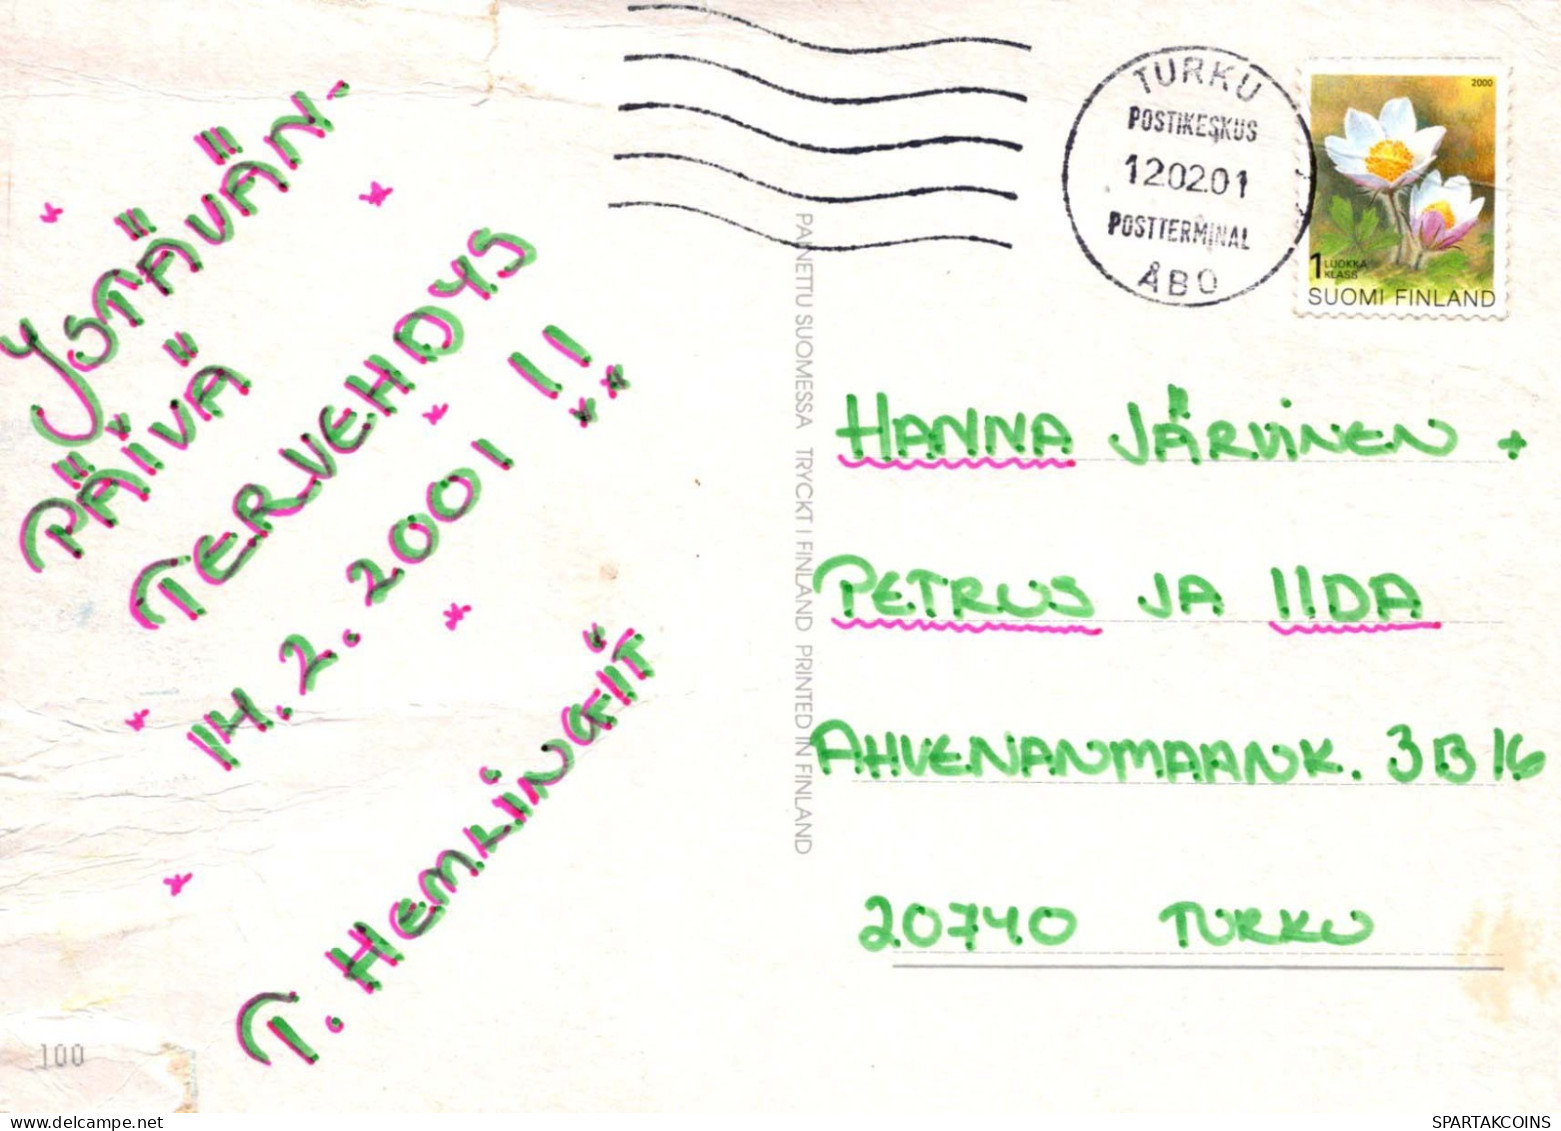 YSTÄVÄN-
PÄIVÄ
TERVEHDYS
14.2.2001 !!
T. HEMLINGIT
100
PAINETTU SUOMESSA TRYCKT I FINLAND PRINTED IN FINLAND
TURKU
POSTIKESKUS
12.02.01
POSTTERMINAL
ÅBO
2000
1 LUOKKA
KLASS
SUOMI FINLAND
HANNA JÄRVINEN +
PETRUS JA IIDA
AHVENANMAANK. 3 B 16
20740 TURKU
SPARTAKCOINS